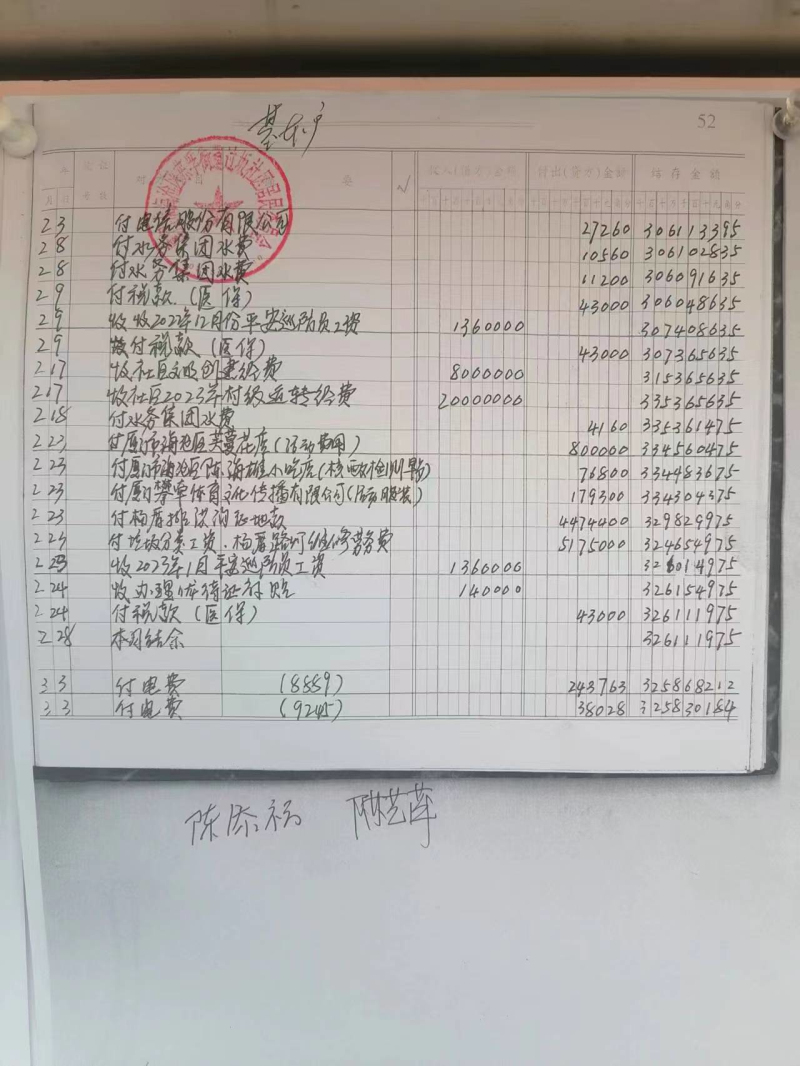 基本户
52
年
月 日
收入(借方)金额 付出(贷方)金额 结存金额
2 3 付电信股份有限公司 27260 306113395
2 8 付水务集团水费 10560 306102835
2 8 付水务集团水费 11200 306091635
2 9 付税款(医保) 43000 306048635
2 9 收2022年12月份平安巡防员工资 1360000 307408635
2 9 付税款(医保) 43000 307365635
2 17 收社区文明创建经费 8000000 315365635
2 17 收社区2023年村级运转经费 20000000 335365635
2 18 付水务集团水费 4160 335361475
2 23 付厦门市海沧区芙蔓花店(活动费用) 800000 334560475
2 23 付厦门市海沧区陈海雄小吃店(核酸检测点) 76800 334483675
2 23 付厦门攀牵体育文化传播有限公司(活动服装) 179300 334304375
2 23 付杨厝排洪沟征地款 4474400 329829975
2 23 付垃圾分类工资、杨厝路灯维修劳务费 5175000 324654975
2 23 收2023年1月平安巡防员工资 1360000 326014975
2 24 收办理优待证补贴 140000 326154975
2 24 付税款(医保) 43000 326111975
2 28 本月结余 326111975
3 3 付电费 (8889) 243763 325868212
3 3 付电费 (9245) 38028 325830184
陈添福 陈艺萍